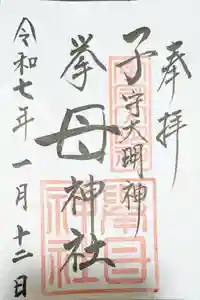 奉拝
子守大明神
挙母神社
令和七年一月十二日